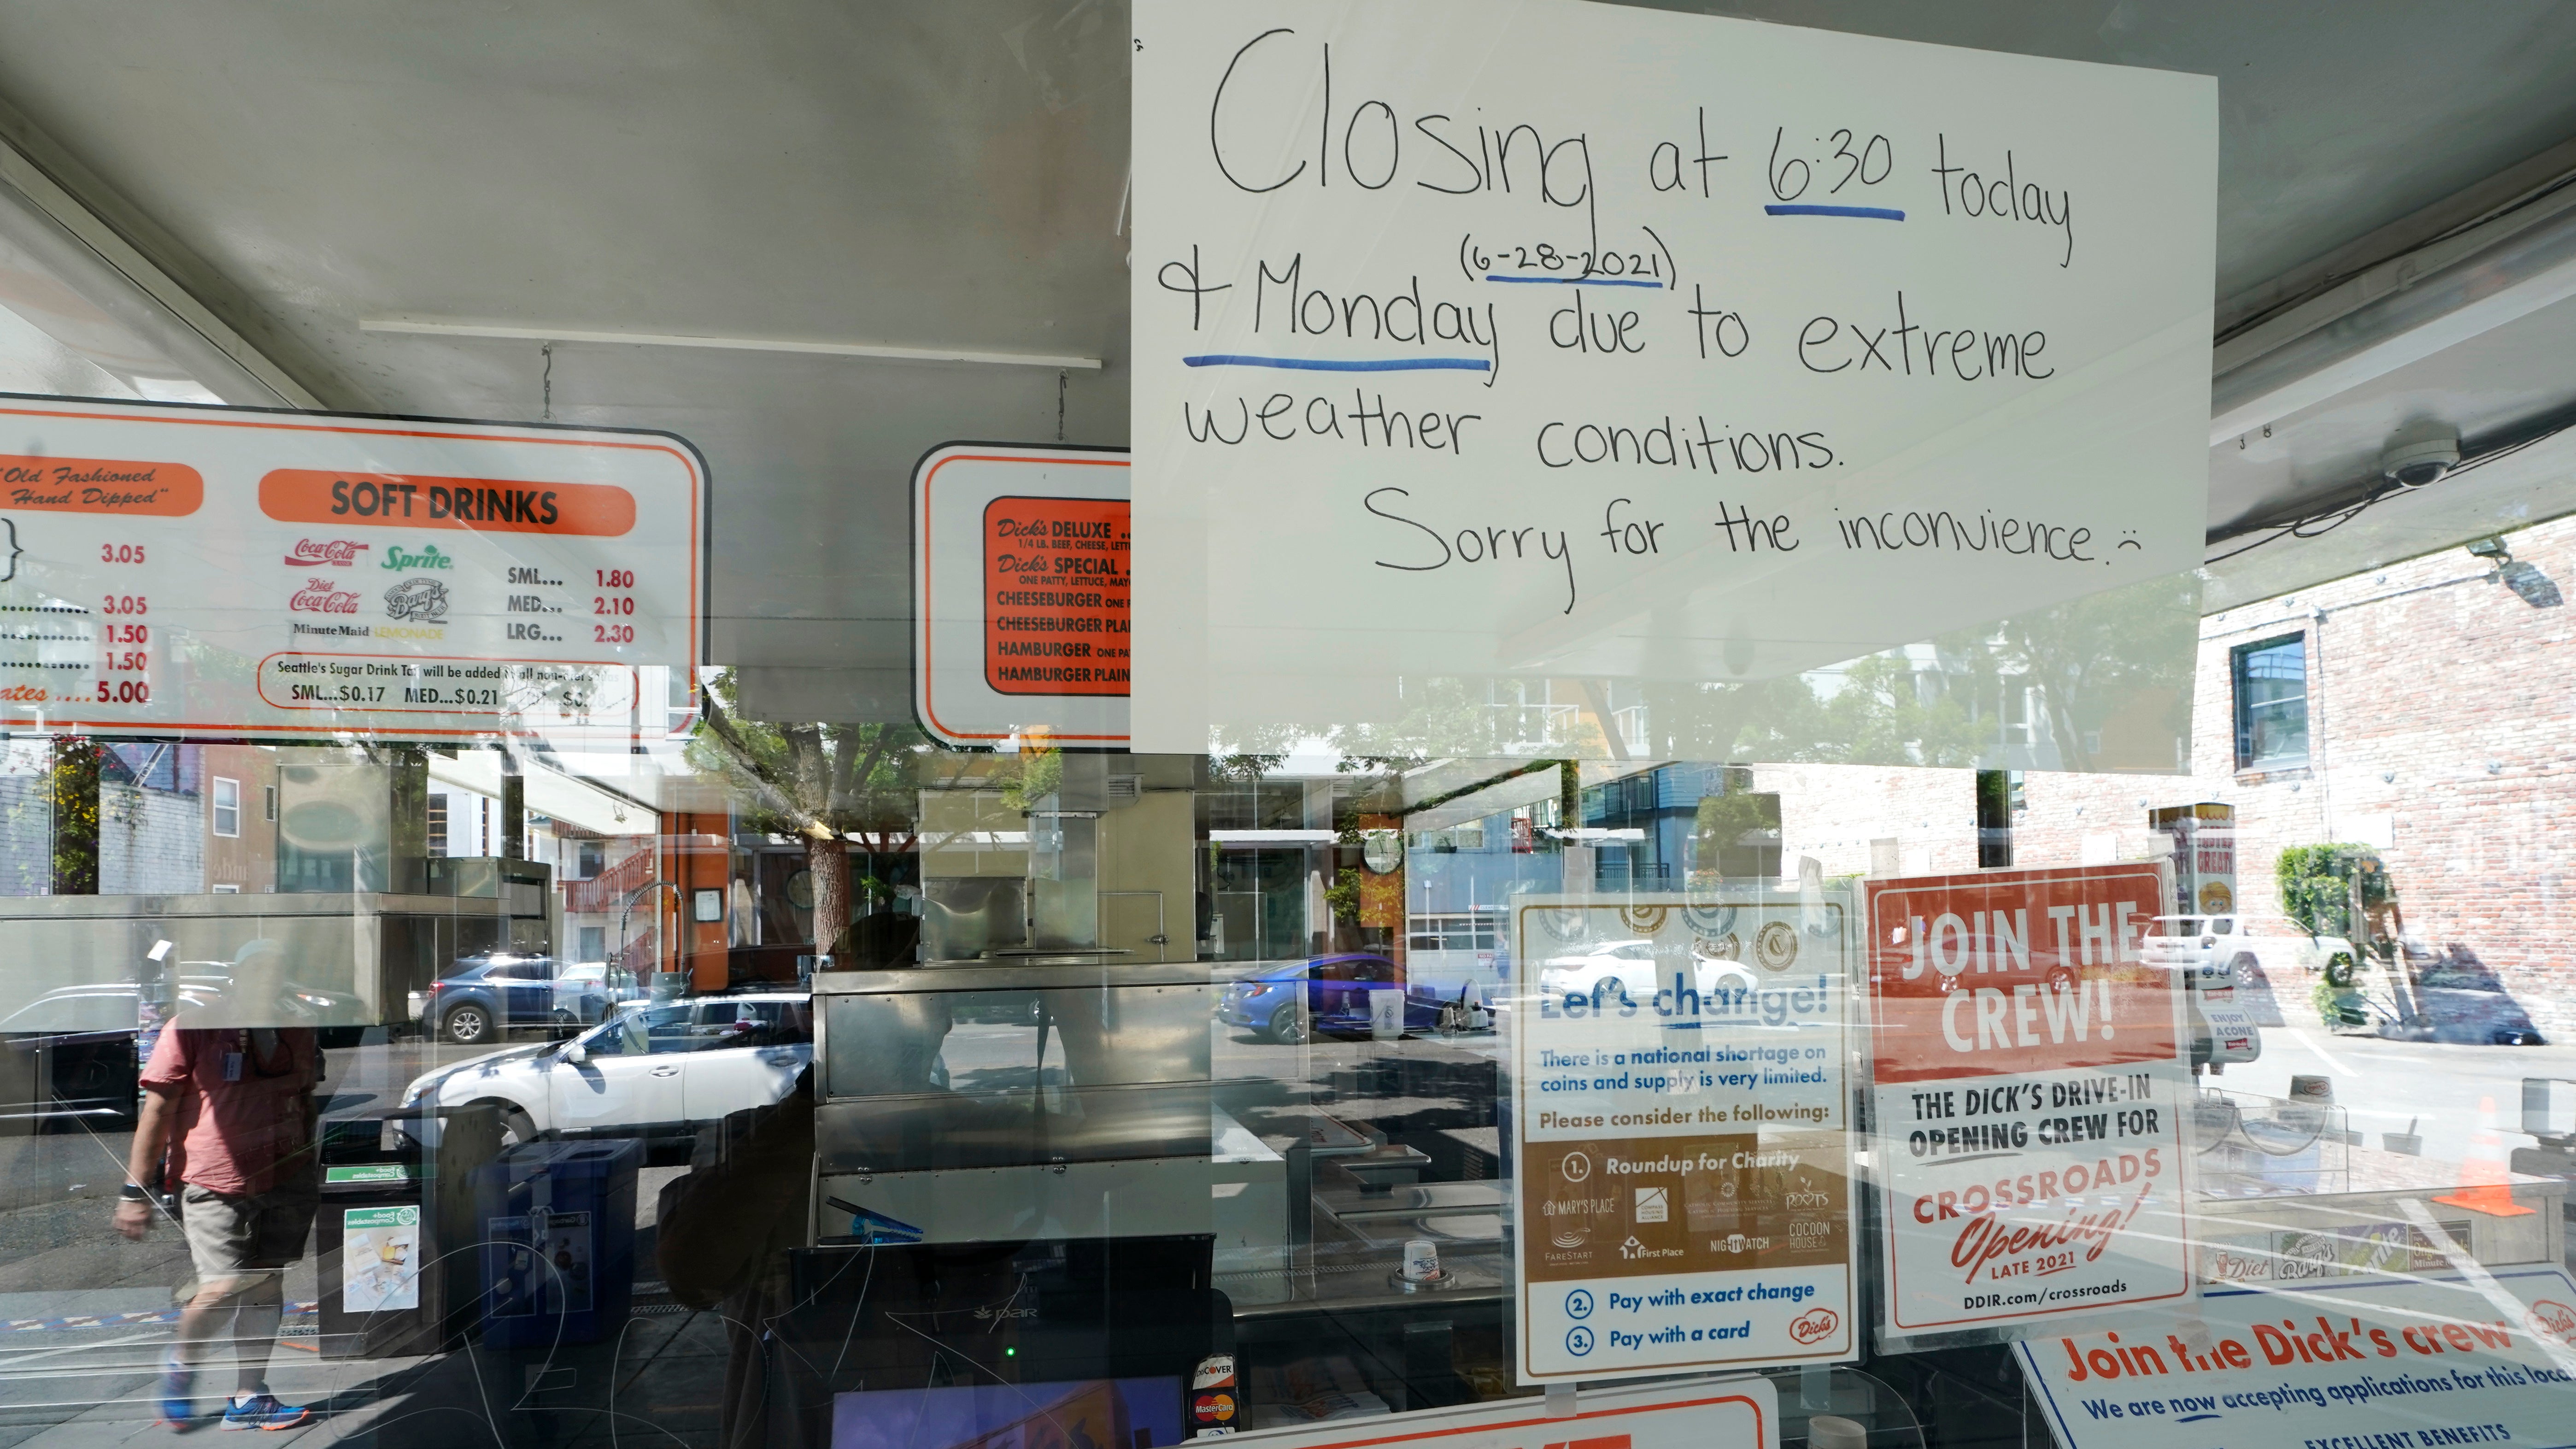 Closing at 6:30 today
(6-28-2021)
& Monday due to extreme
weather conditions.
Sorry for the inconvience. :(
"Old Fashioned
Hand Dipped"
3.05
3.05
1.50
1.50
5.00
SOFT DRINKS
Coca-Cola Sprite
Diet Coca-Cola Barq's
Minute Maid LEMONADE
SML... 1.80
MED... 2.10
LRG... 2.30
Seattle's Sugar Drink Tax will be added
SML...$0.17 MED...$0.21
Dick's DELUXE ..
1/4 LB. BEEF, CHEESE,
Dick's SPECIAL .
ONE PATTY, LETTUCE,
CHEESEBURGER ONE
CHEESEBURGER
HAMBURGER ONE
HAMBURGER PLAIN
Let's change!
There is a national shortage on
coins and supply is very limited.
Please consider the following:
1. Roundup for Charity
MARY'S PLACE
ROOTS
FARESTART
First Place
NIGHTWATCH
COCOON HOUSE
2. Pay with exact change
3. Pay with a card
Dick's
JOIN THE
CREW!
THE DICK'S DRIVE-IN
OPENING CREW FOR
CROSSROADS
Opening!
LATE 2021
DDIR.com/crossroads
ENJOY
A CONE
Diet
Barq's
Join the Dick's crew
We are now accepting applications for this
EXCELLENT BENEFITS
Dick's
par
DISCOVER
MasterCard